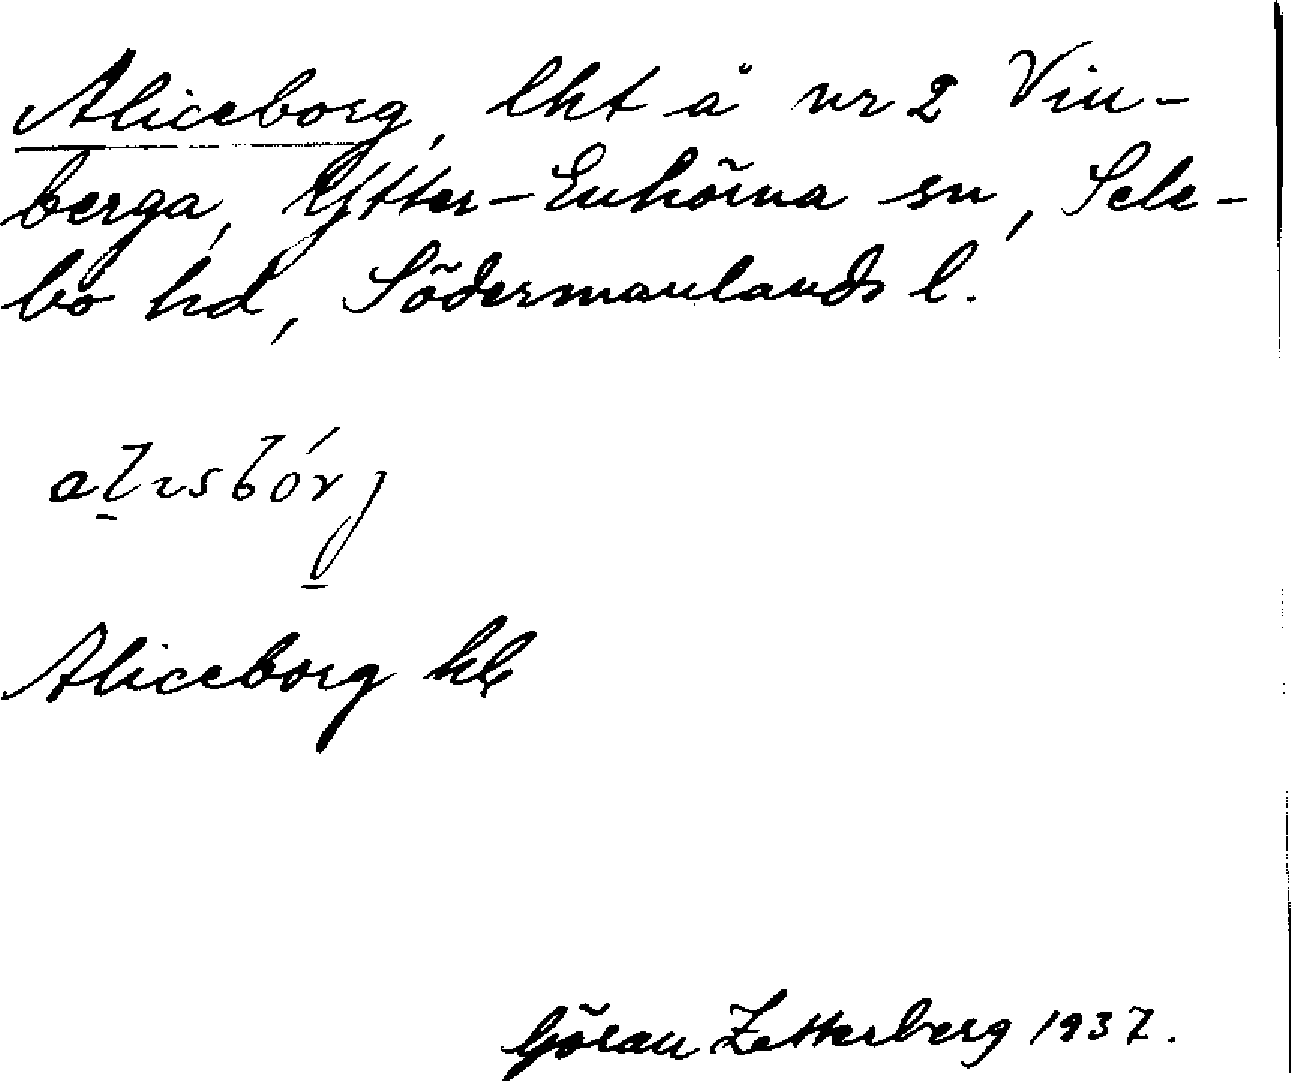 Aliceborg, lht å nr 2 Vin-
berga, Ytter-Enhörna sn, Sele-
bo hd, Södermanlands l.
Aliceborg kb
Göran Zetterberg 1937.